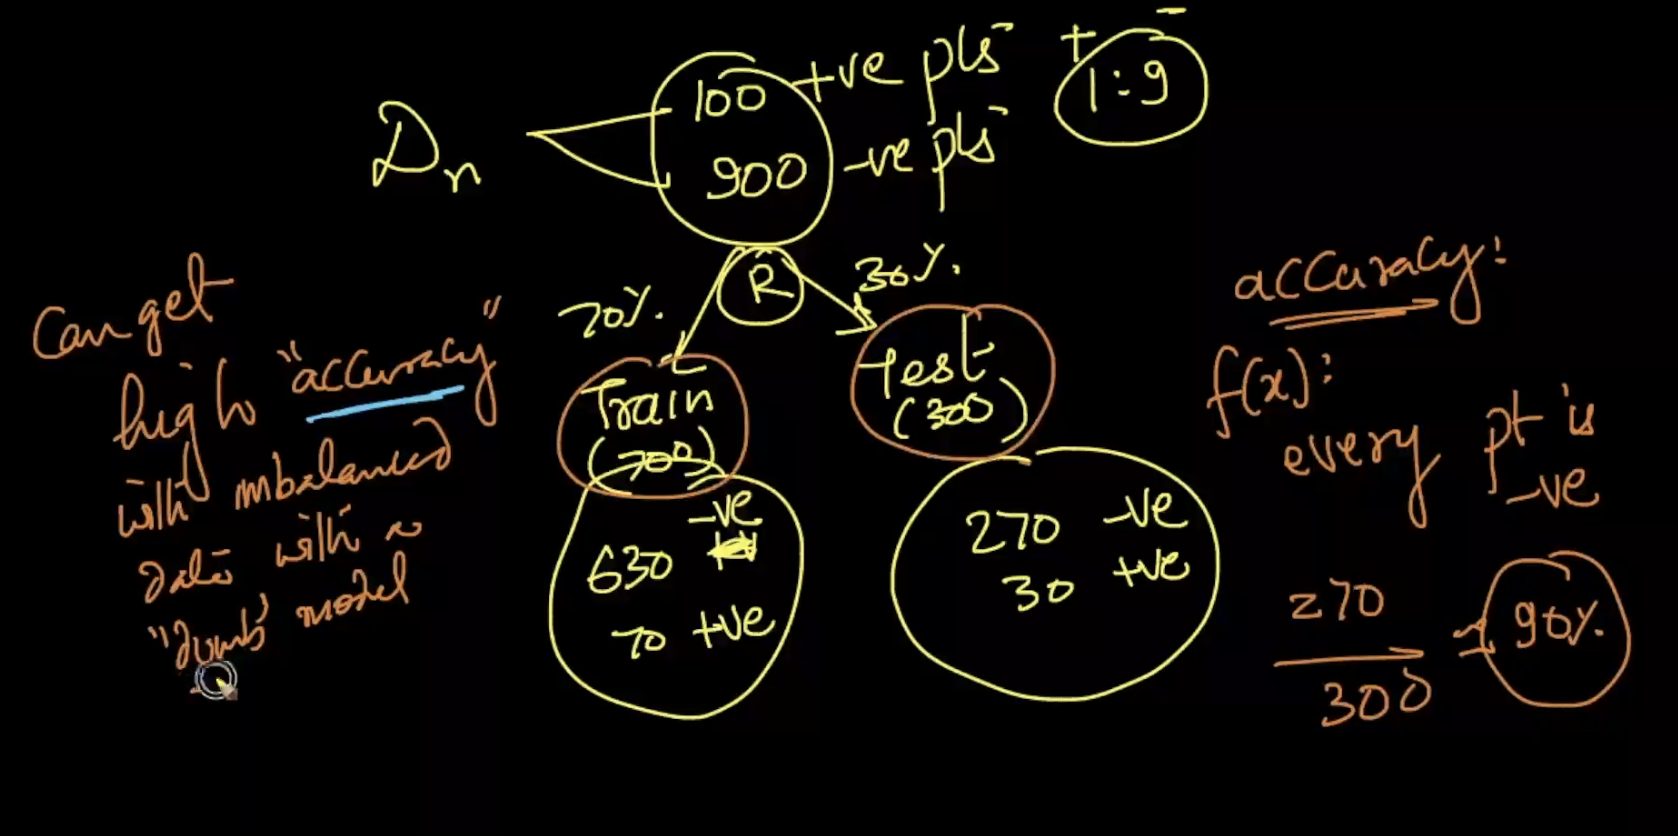 Dn
100 +ve pts
900 -ve pts
+ -
1:9
R
70%.
30%.
Train
(700)
Test
(300)
-ve
630
70 +ve
270 -ve
30 +ve
Can get
high "accuracy"
with imbalanced
data with a
"dumb" model
accuracy:
f(x):
every pt is
-ve
270
300
= 90%.